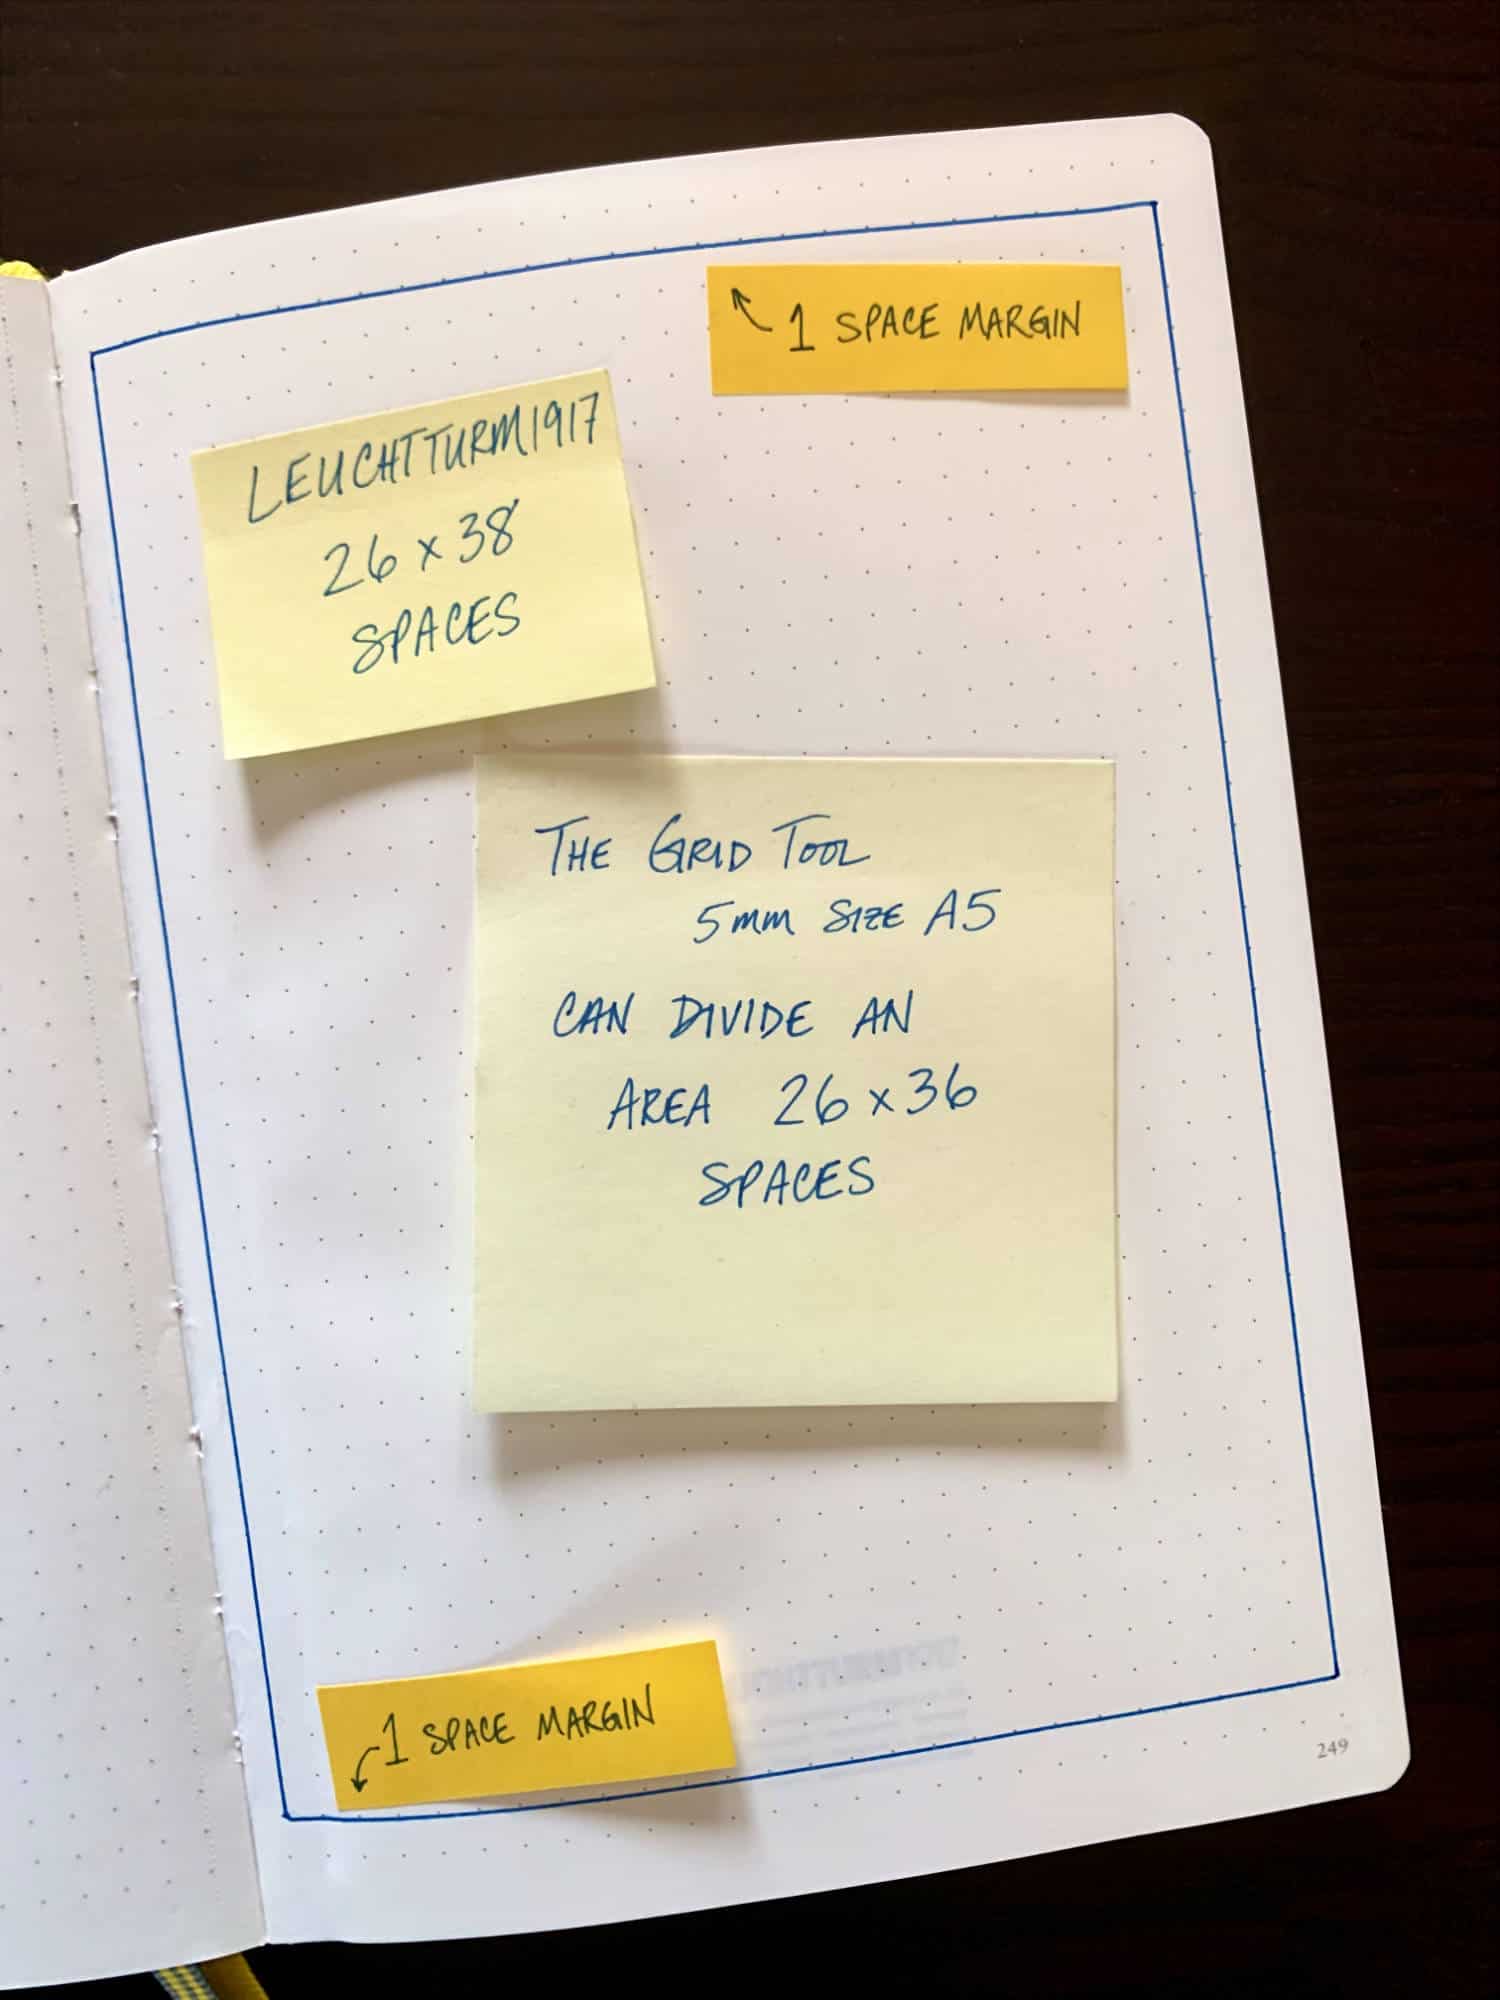 1 SPACE MARGIN
LEUCHTTURM1917
26 x 38
SPACES
THE GRID TOOL
5mm SIZE A5
CAN DIVIDE AN
AREA 26 x 36
SPACES
1 SPACE MARGIN
249